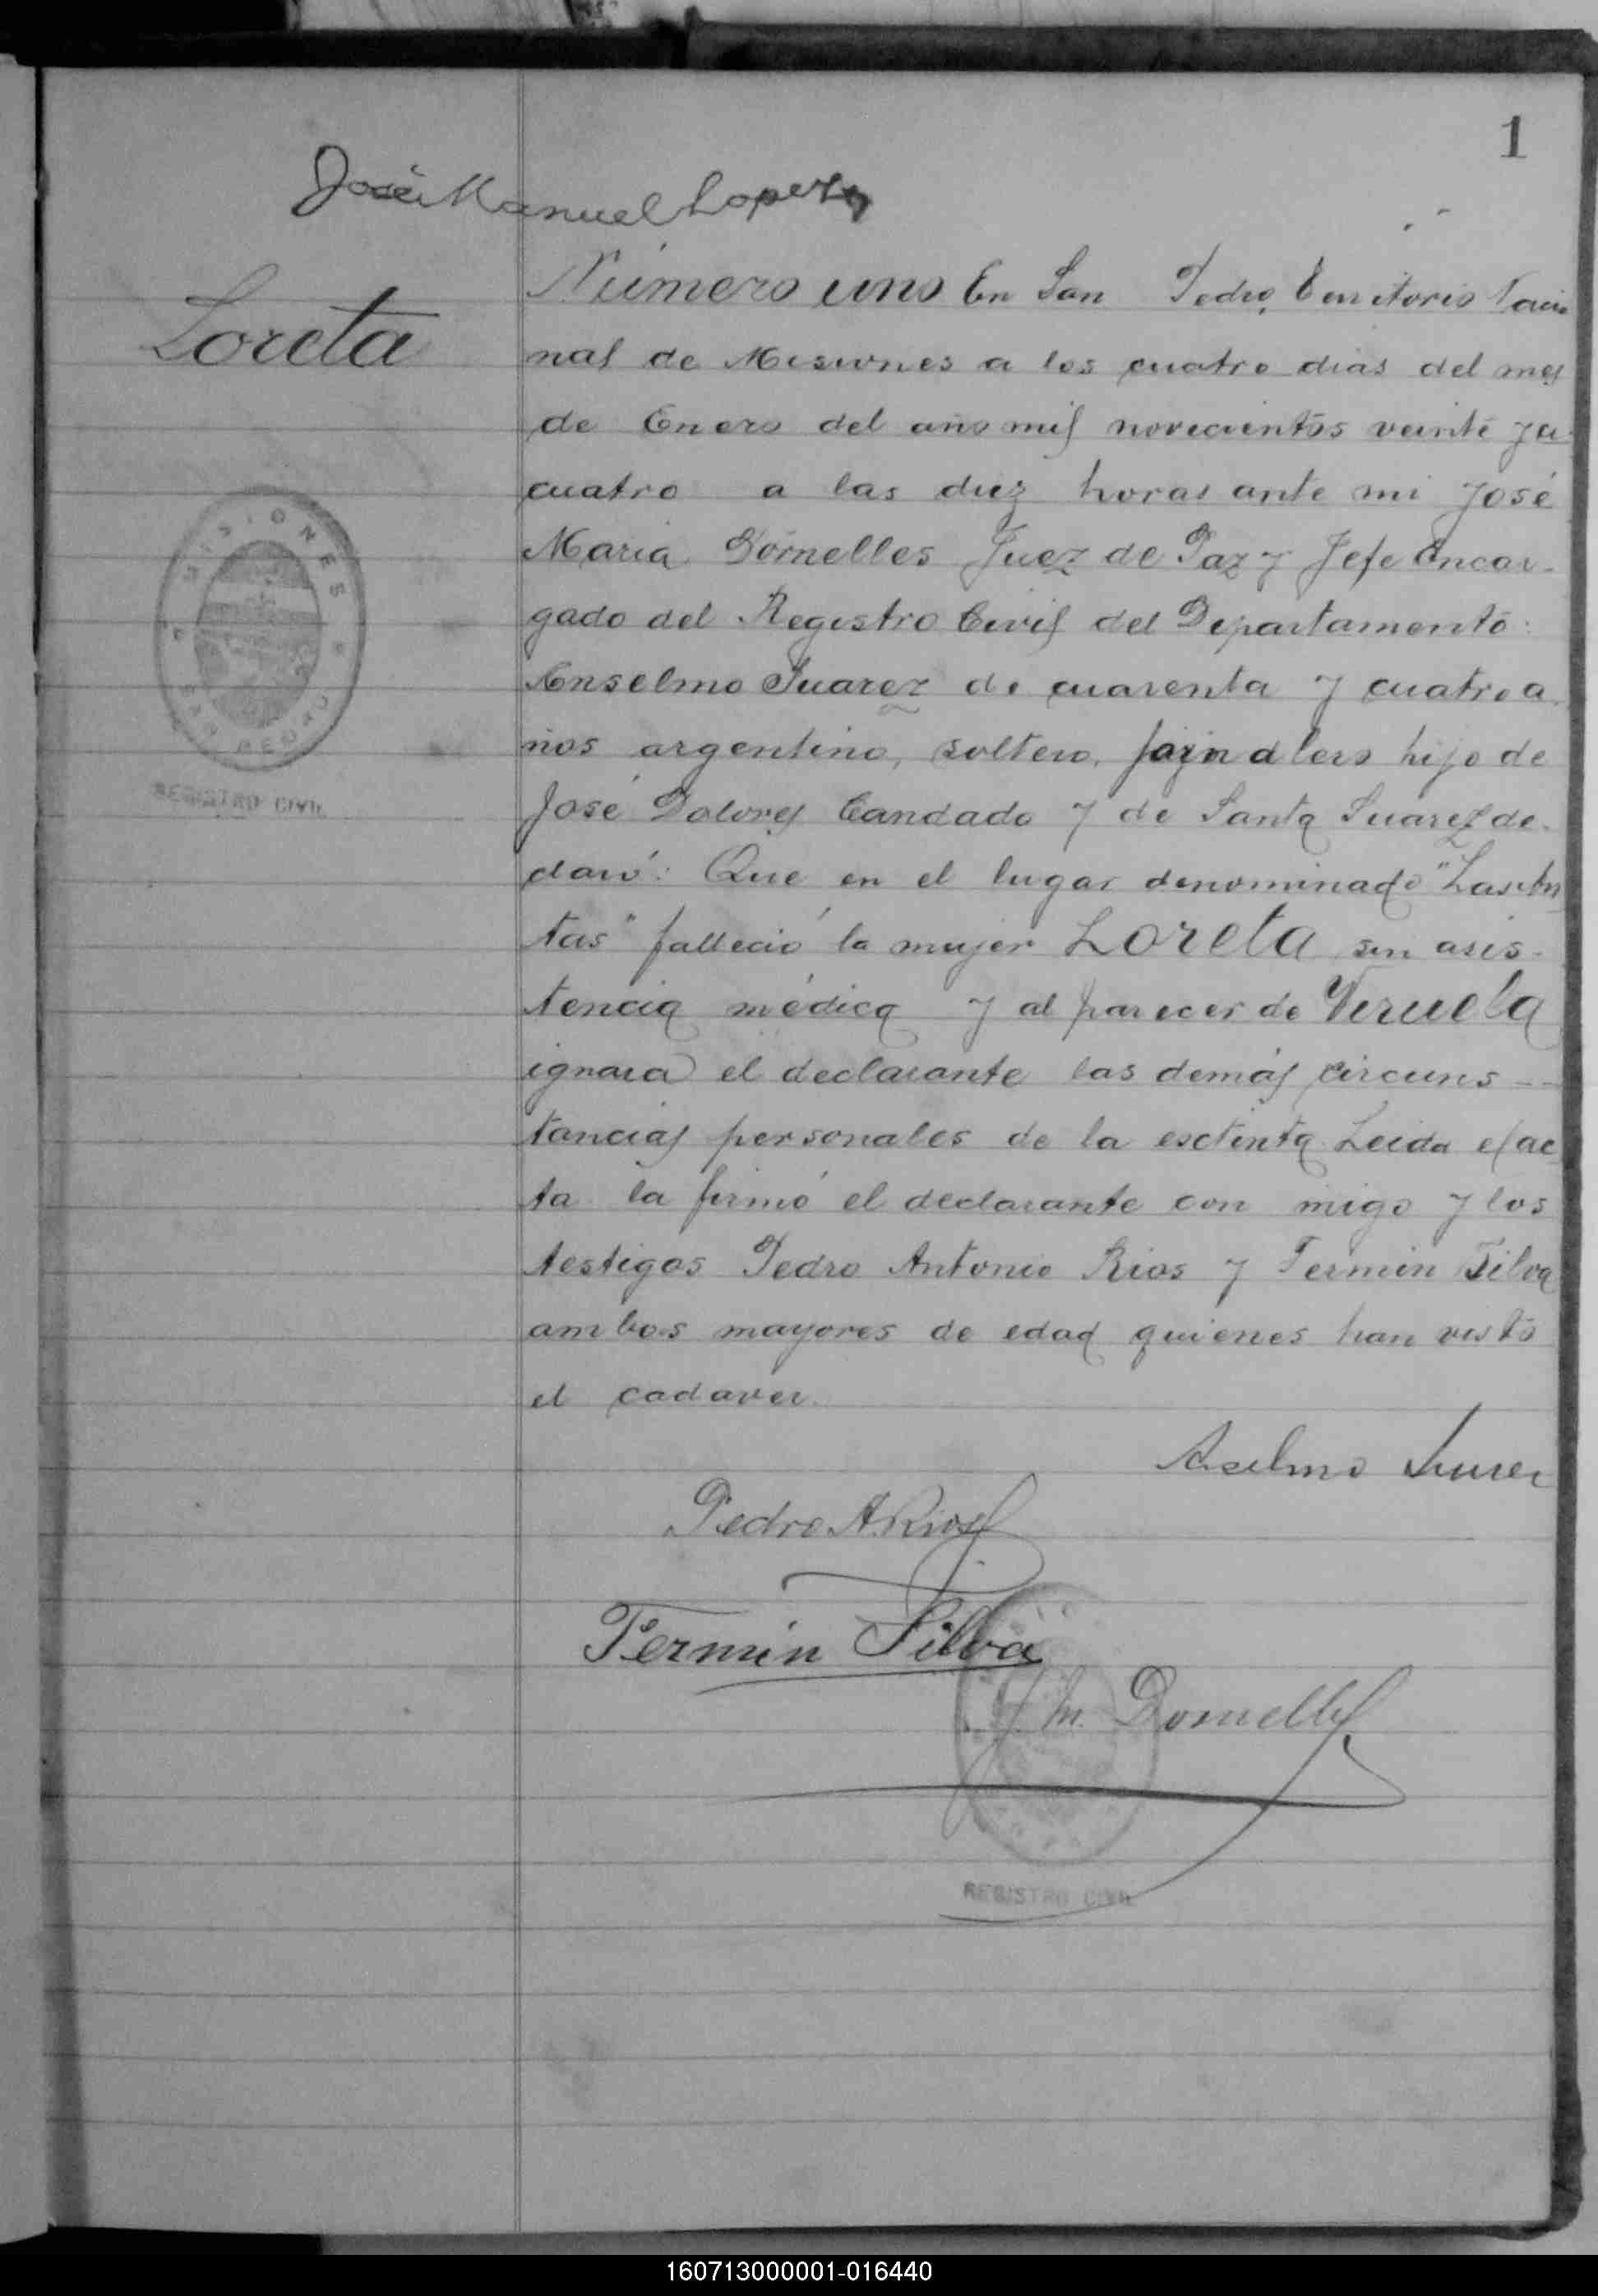 1
José Manuel Lopez
Loreta
Número uno En San Pedro, Territorio Nacio
nal de Misiones a los cuatro dias del mes
de Enero del año mil novecientos veinte y
cuatro a las diez horas ante mi José
Maria Dornelles Juez de Paz y Jefe Encar-
gado del Registro Civil del Departamento:
Anselmo Suarez de cuarenta y cuatro a
ños argentino, soltero, jornalero hijo de
José Dolores Candado y de Santa Suarez de-
claró: Que en el lugar denominado "Las
tas" falleció la mujer Loreta sin asis-
tencia médica y al parecer de Viruela
ignora el declarante las demás circuns--
tancias personales de la esctinta Leida el ac
ta la firmó el declarante con migo y los
testigos Pedro Antonio Rios y Fermin Silva
ambos mayores de edad quienes han visto
el cadaver.
Aselmo Surez
Pedro A. Rios
Fermin Silva
J. M. Dornelles
MISIONES
REGISTRO CIVIL
REGISTRO CIVIL
160713000001-016440